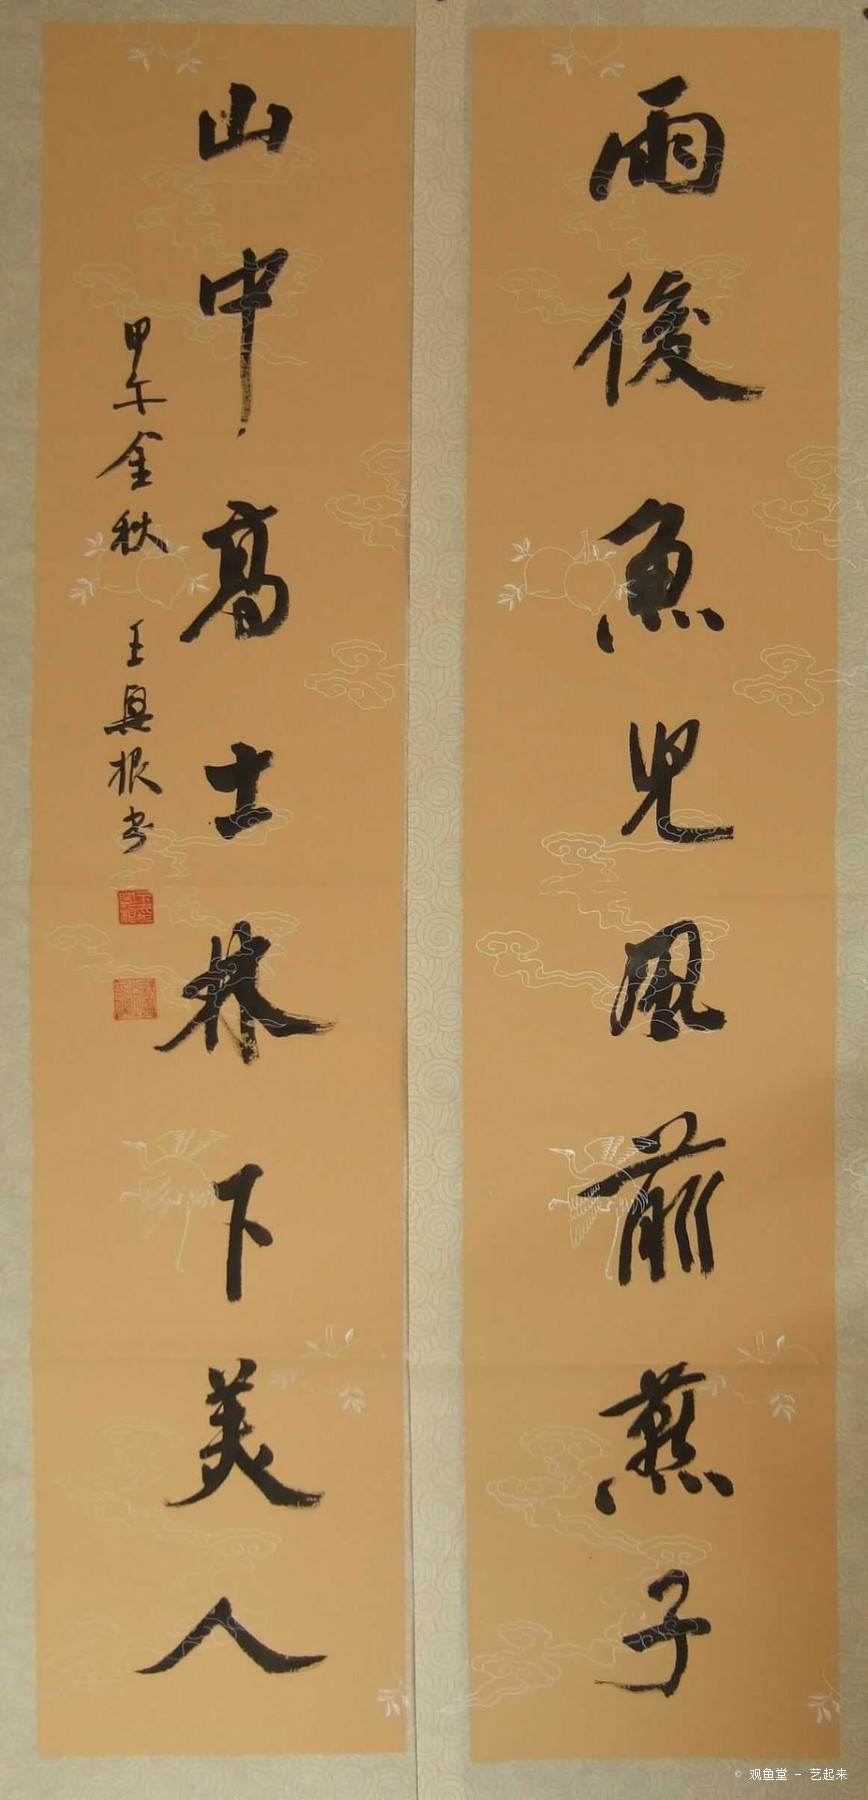 雨後魚兒風前燕子
山中高士林下美人
甲午金秋 王興根書
© 观鱼堂 - 艺起来